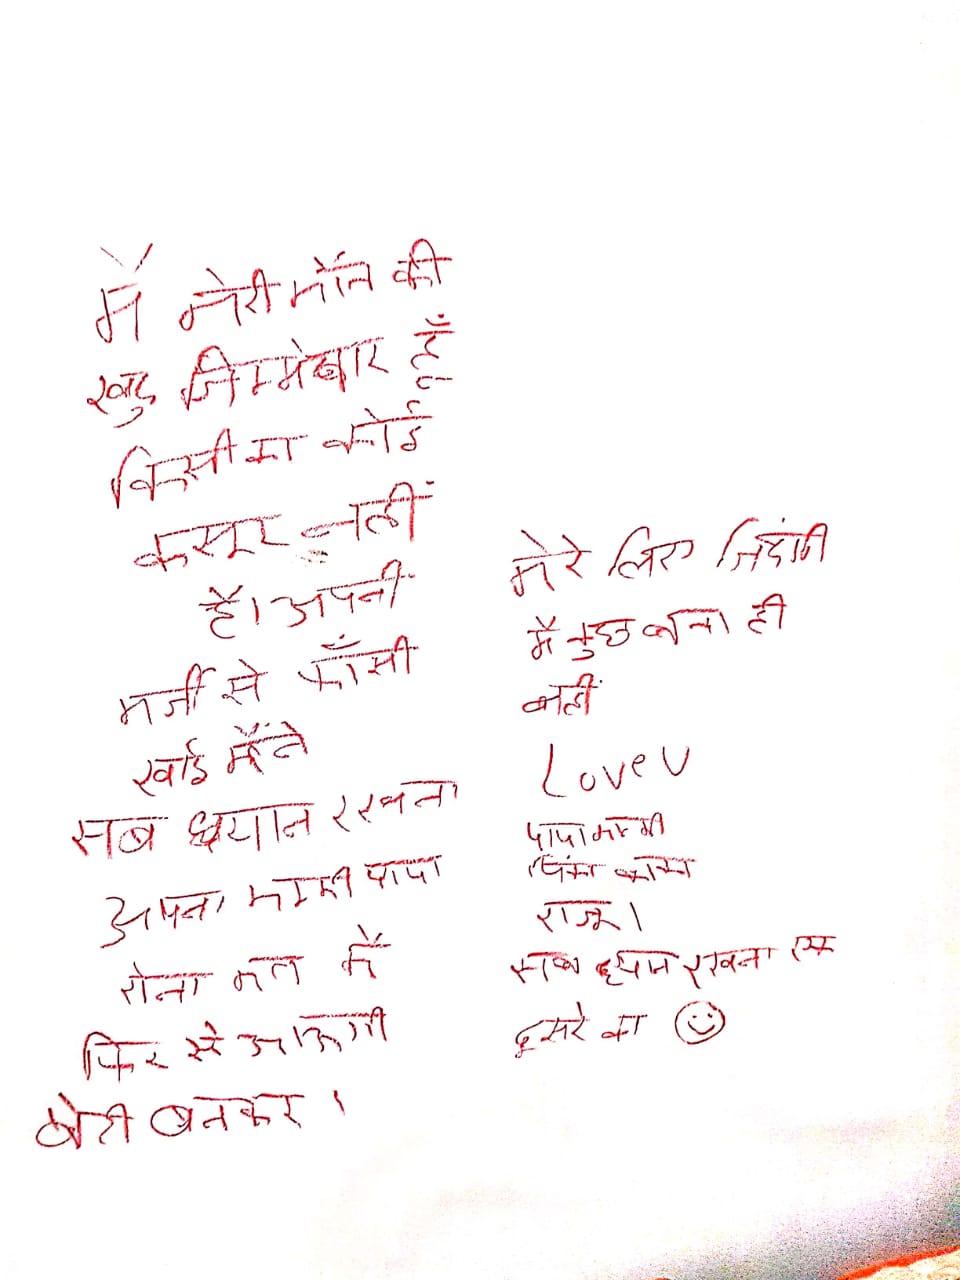 मैं मेरी मौत की
खुद जिम्मेबार हूँ
किसी का कोई
कसूर नहीं
है। अपनी
मर्जी से फाँसी
खाई मैंने
सब ध्यान रखना
अपना मम्मी पापा
रोना मत मैं
फिर से आऊगी
बेटी बनकर।
मेरे लिए जिंदगी
मैं कुछ बना ही
नहीं
Love U
पापा मम्मी
राजू।
सब ध्यान रखना एक
दूसरे का ☺